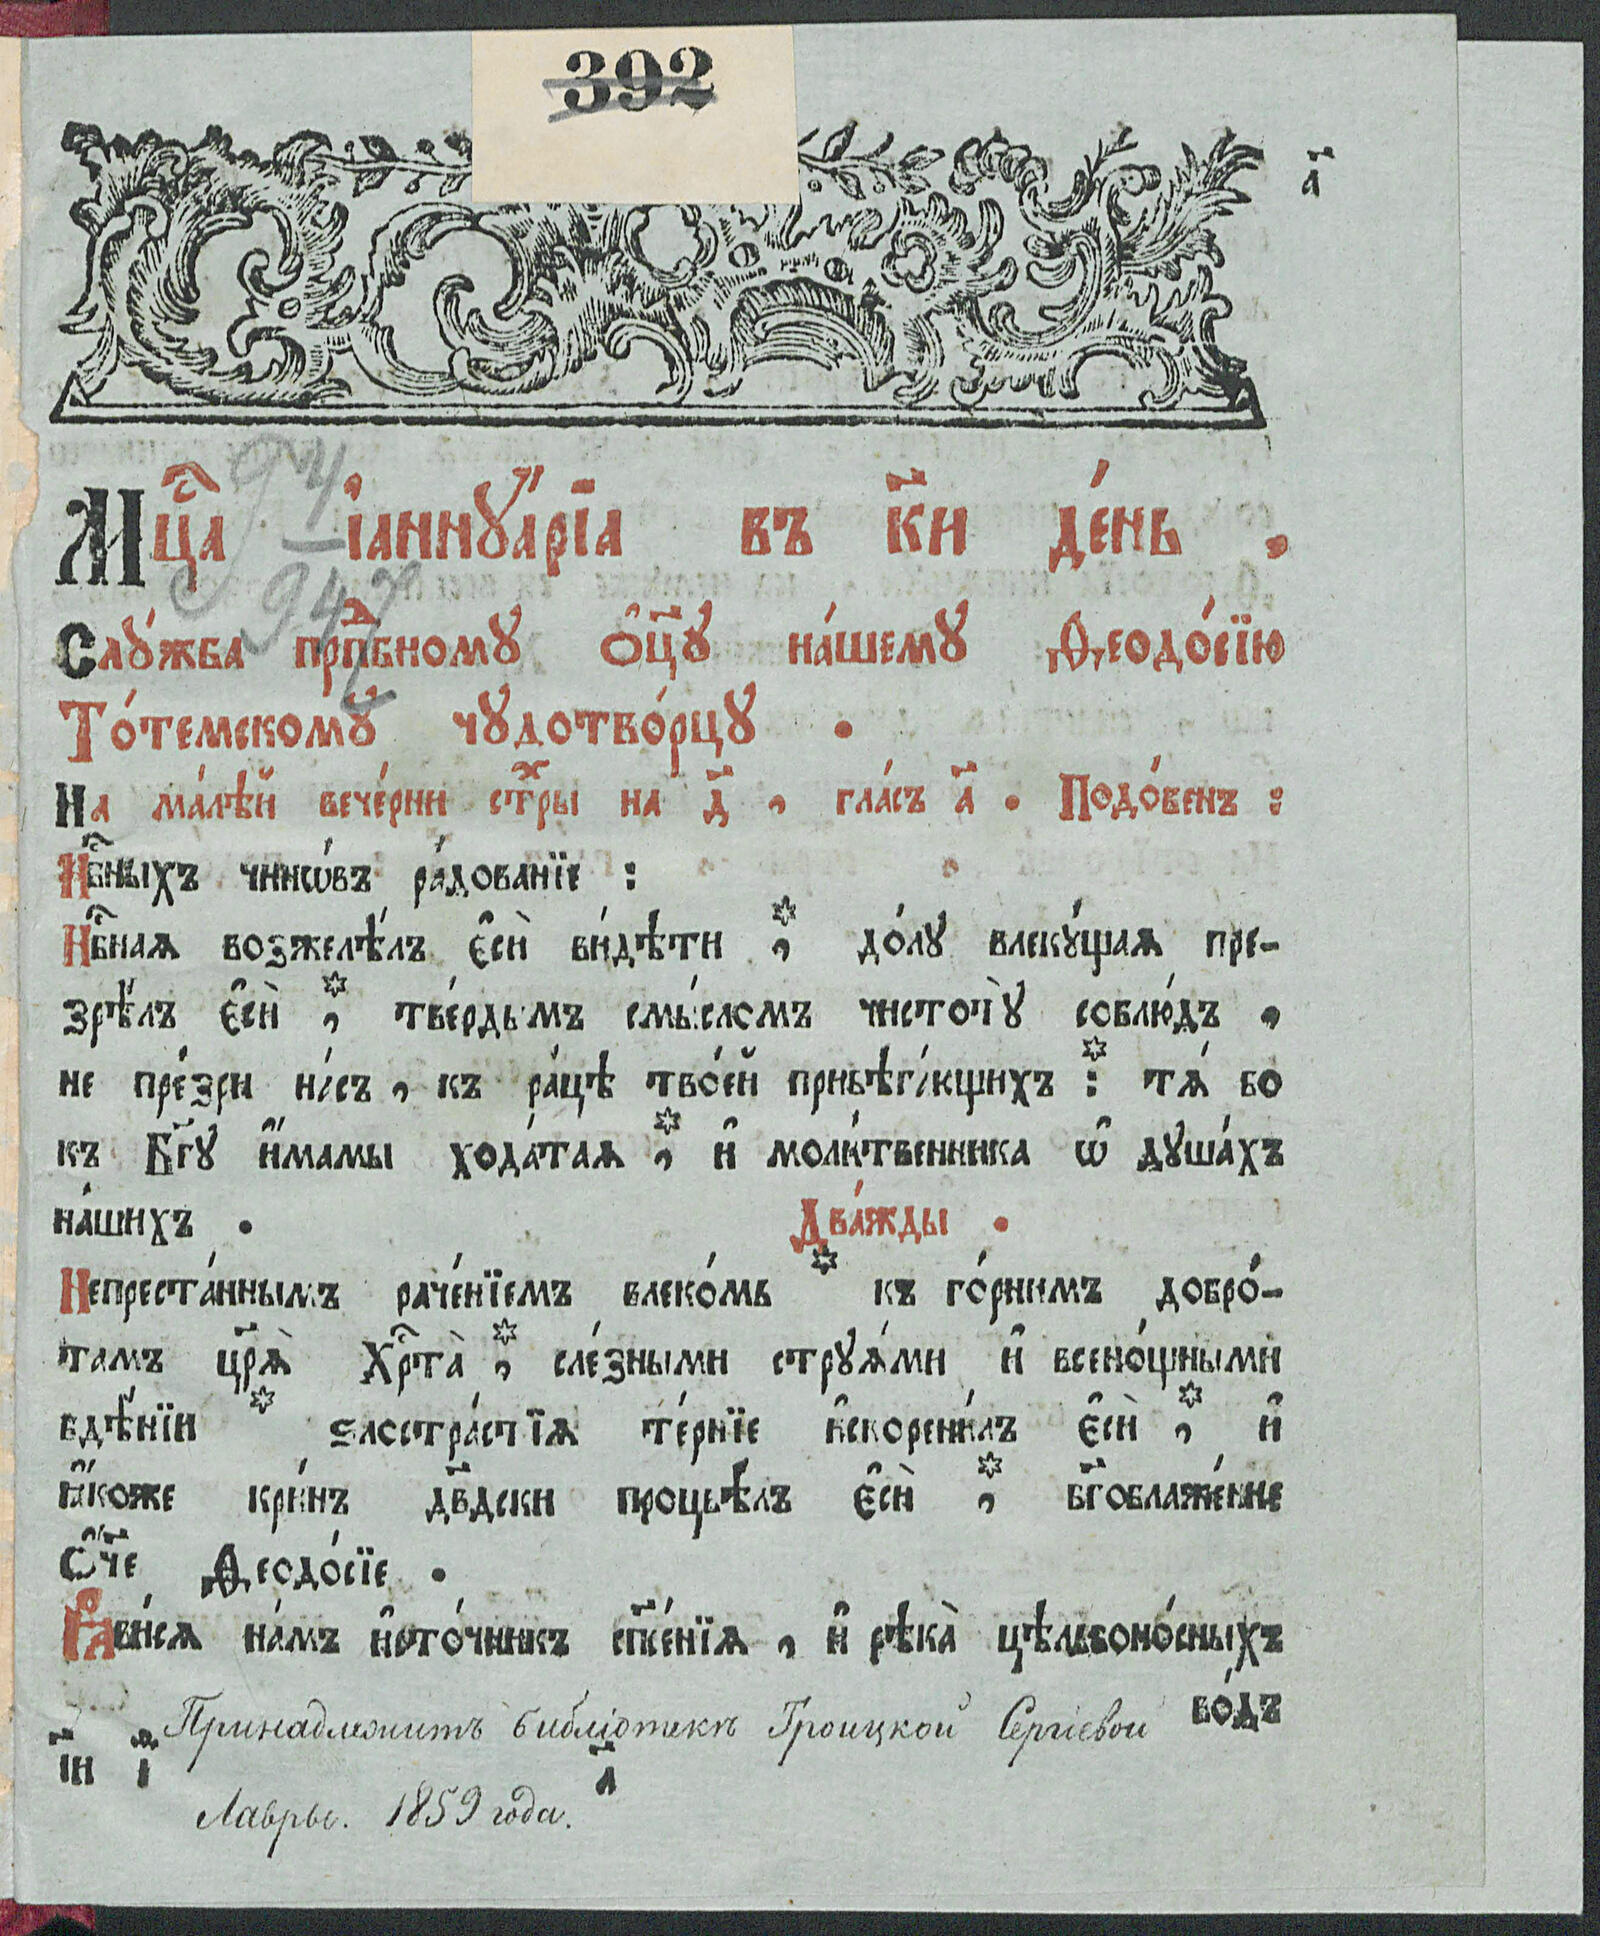 392
а҃
94
942
Мц҇а і҆аннꙋа́рїа въ к҃и де́нь .
Слꙋ́жба прпⷣбномꙋ ѻ҆ц҃ꙋ на́шемꙋ Ѳеодо́сїю
То́темскомꙋ чꙋдотво́рцꙋ .
На ма́лѣй вече́рни стⷯры на д҃ , гла́съ а҃ . Подо́бенъ :
Нбⷭ҇ныхъ чинѡ́въ ра́дованїе :
Нбⷭ҇наѧ возжелѣ́лъ є҆сѝ ви́дѣти * , до́лꙋ влекꙋ́щаѧ пре-
зрѣ́лъ є҆сѝ * , тве́рдымъ смы́сломъ чистотꙋ̀ соблю́дъ ,
не пре́зри на́съ , къ ра́цѣ твое́й прибѣга́ющихъ * : тѧ́ бо
къ Бг҃ꙋ и҆́мамы хода́таѧ * , и҆ моли́твенника ѡ҆ дꙋша́хъ
на́шихъ . Два́жды .
Непреста́ннымъ раче́нїемъ влеко́мь * къ го́рнимъ добро́-
тамъ цр҃ѧ̀ Хрⷭ҇та̀ * , сле́зными стрꙋѧ́ми и҆ всено́щными
бдѣ́нїи * ѕлострⷭа́стїѧ те́рнїе и҆скорени́лъ є҆сѝ * , и҆
ꙗ҆́коже кри́нъ дв҃дски процвѣ́лъ є҆сѝ * , бг҃облаже́нне
Ѻ҆́ч҃е Ѳеодо́сїе .
Ꙗ҆ви́сѧ на́мъ и҆сто́чникъ сп҃се́нїѧ , и҆ рѣка̀ цѣльбоно́сныхъ
во́дъ
Принадлежитъ библіотекѣ Троицкой Сергіевой
і҃н і҃ а҃
Лавры. 1859 года.